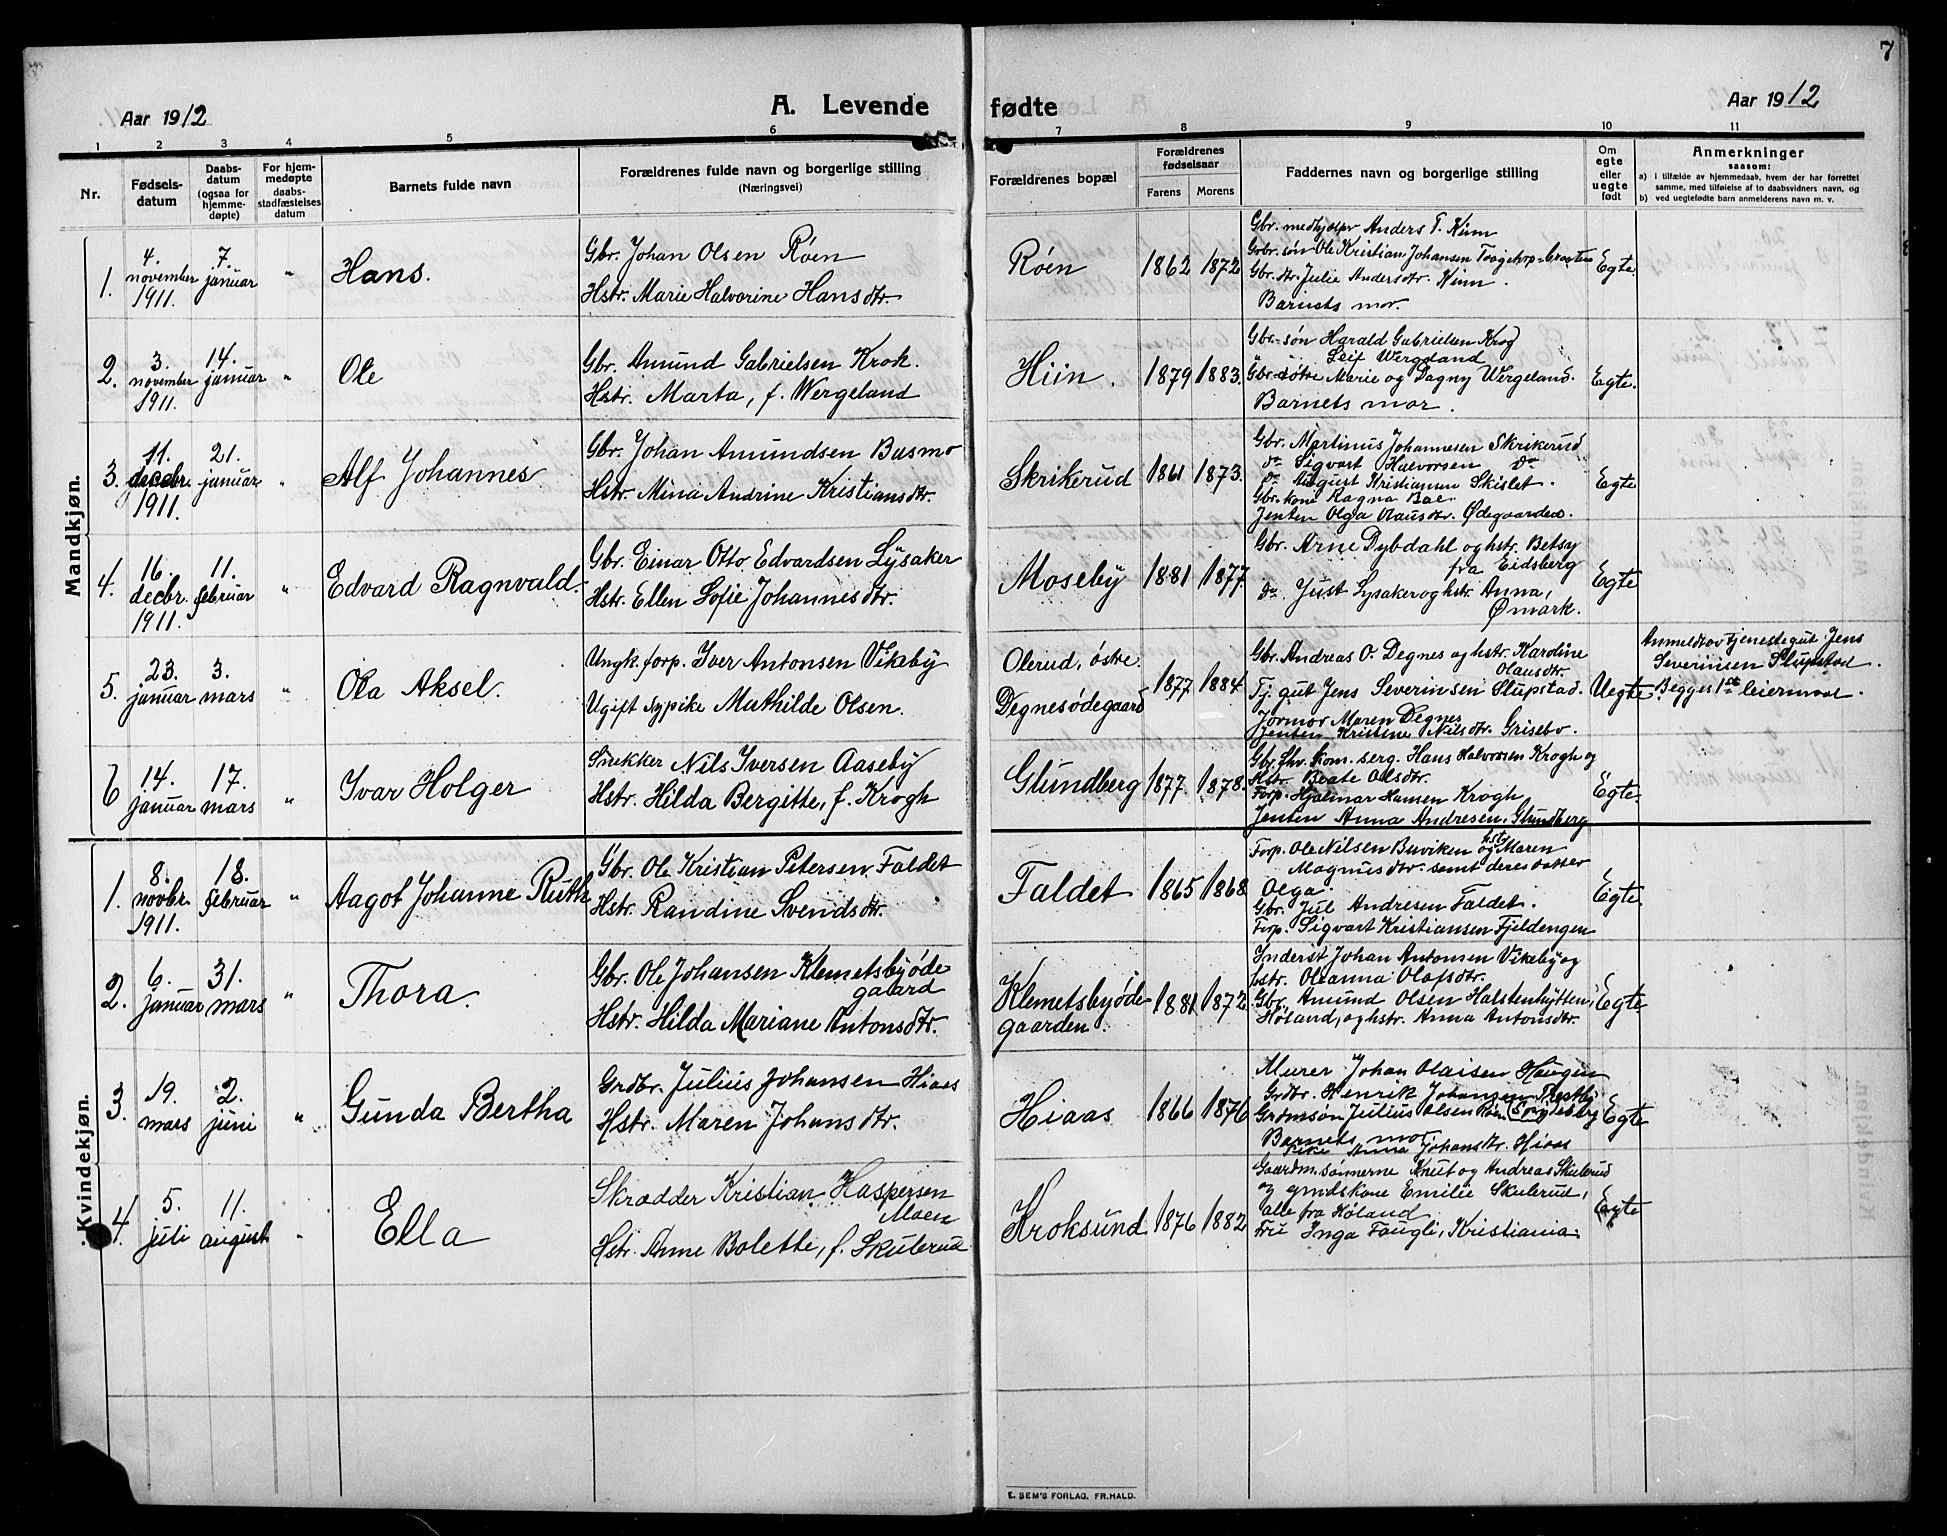 7
Aar 1912
A. Levende fødte
Aar 1912
1 2 3 4 5 6 7 8 9 10 11
Nr.
Fødsels-
datum
Daabs-
datum
(ogsaa for
hjemme-
døpte)
For hjem-
medøpte
daabs-
stadfæstelses
datum
Barnets fulde navn
Forældrenes fulde navn og borgerlige stilling
(Næringsvei)
Forældrenes bopæl
Forældrenes
fødselsaar
Farens Morens
Faddernes navn og borgerlige stilling
Om
egte
eller
uegte
født
Anmerkninger
saasom:
a) i tilfælde av hjemmedaab, hvem der har forrettet
samme, med tilføielse af to daabsvidners navn, og
b) ved uegtefødte barn anmelderens navn m. v.
Mandkjøn.
1.
4.
november
1911.
7.
januar
"
Hans.
Gbr. Johan Olsen Røen
Hstr. Marie Halvorine Hansdtr.
Røen
1862
1872
Gbr. medhjælper Anders T. Kinn
Grbr. søn Ole Kristian Johansen
Gbr. dtr. Julie Andersdtr. Kinn.
Barnets mor.
Egte.
2.
3.
november
1911.
14.
januar
"
Ole
Gbr. Amund Gabrielsen Krok.
Hstr. Marta, f. Wergeland
Hiin.
1879
1883.
Gbr. søn Harald Gabrielsen Krog
Leif Wergeland
Gbr. døtre Marie og Dagny Wergeland.
Barnets mor.
Egte.
3.
11.
decbr.
1911.
21.
januar
"
Alf Johannes
Gbr. Johan Amundsen Busmo
Hstr. Mina Andrine Kristiansdtr.
Skrikerud
1861
1873.
Gbr. Martinus Johannesen Skrikerud
do Sigvart Halvorsen do
do August Kristiansen Skislet.
Gbr. kone Ragna Boe
Jenten Olga Olausdtr. Ødegaarden.
Egte
4.
16.
decbr.
1911.
11.
februar
"
Edvard Ragnvald.
Gbr. Einar Otto Edvardsen Lysaker
Hstr. Ellen Sofie Johannesdtr.
Moseby
1881
1877.
Gbr. Arne Dybdahl og hstr. Betsy
fra Eidsberg
do Just Lysaker og hstr. Anna,
Ømark.
Egte
5.
23.
januar
3.
mars
"
Ola Aksel.
Ungk. forp. Iver Antonsen Vikeby
Ugift sypike Mathilde Olsen.
Olerud, østre
Degnesødegaard
1877
1884.
Gbr. Andreas O. Degnes og hstr. Kardine
Olausdtr.
Tj. gut Jens Severinsen Slupstad.
Jormor Maren Degnes
Jenten Kristine Nilsdtr. Grisebo.
Uegte
Anmeldt av tjenestegut Jens
Severinsen Slupstad.
Begges 1ste leiermaal.
6
14.
januar
17.
mars
"
Ivar Holger
Snekker Nils Iversen Aaseby
Hstr. Hilda Bergitte, f. Krogh
Glundberg
1877
1878.
Gbr. Hans Halvorsen Krogh og
Hstr. Beate Olsdtr.
Forp. Hjalmar Hansen Krogh
Jenten Anna Andresen, Glundberg
Egte.
Kvindekjøn.
1.
8.
novbr.
1911.
18.
februar
"
Aagot Johanne Ruth
Gbr. Ole Kristian Petersen Faldet
Hstr. Randine Svendsdtr.
Faldet
1865
1868
Forp. Ole Nilsen Buviken og hstr. Maren
Magnusdtr. samt deres datter
Olga.
Gbr. Jul Andresen Faldet.
Forp. Sigvart Kristiansen Fjeldengen
Egte.
2.
6.
januar
31.
mars
"
Thora.
Gbr. Ole Johansen Klemetsbyøde
gaard
Hstr. Hilda Mariane Antonsdtr.
Klemetsbyøde
gaarden.
1881
1872.
Inderst Johan Antonsen Vikeby og
hstr. Oleanna Olafsdtr.
Gbr. Amund Olsen Halstenhytten,
Høland, og hstr. Anna Antonsdtr.
Egte
3.
19.
mars
2.
juni
"
Gunda Bertha
Grdbr. Julius Johansen Hiaas
Hstr. Maren Johansdtr.
Hiaas
1866
1876
Murer Johan Olaisen Haugen
Grdbr. Henrik Johansen Trestby
Grdmsøn Julius Olsen
Barnets mor
Pike Anna Johansdtr. Hiaas
Egte
4.
5.
juli
11.
august
"
Ella
Skrædder Kristian Haspersen
Moen
Hstr. Anne Bolette, f. Skulerud
Kroksund
1876
1882
Gaardm. sønnerne Knut og Andreas Skulerud
og grndskone Emilie Skulerud,
alle fra Høland
Fru Inga Faugli, Kristiania.
Egte
E. SEM'S FORLAG, FR.HALD.